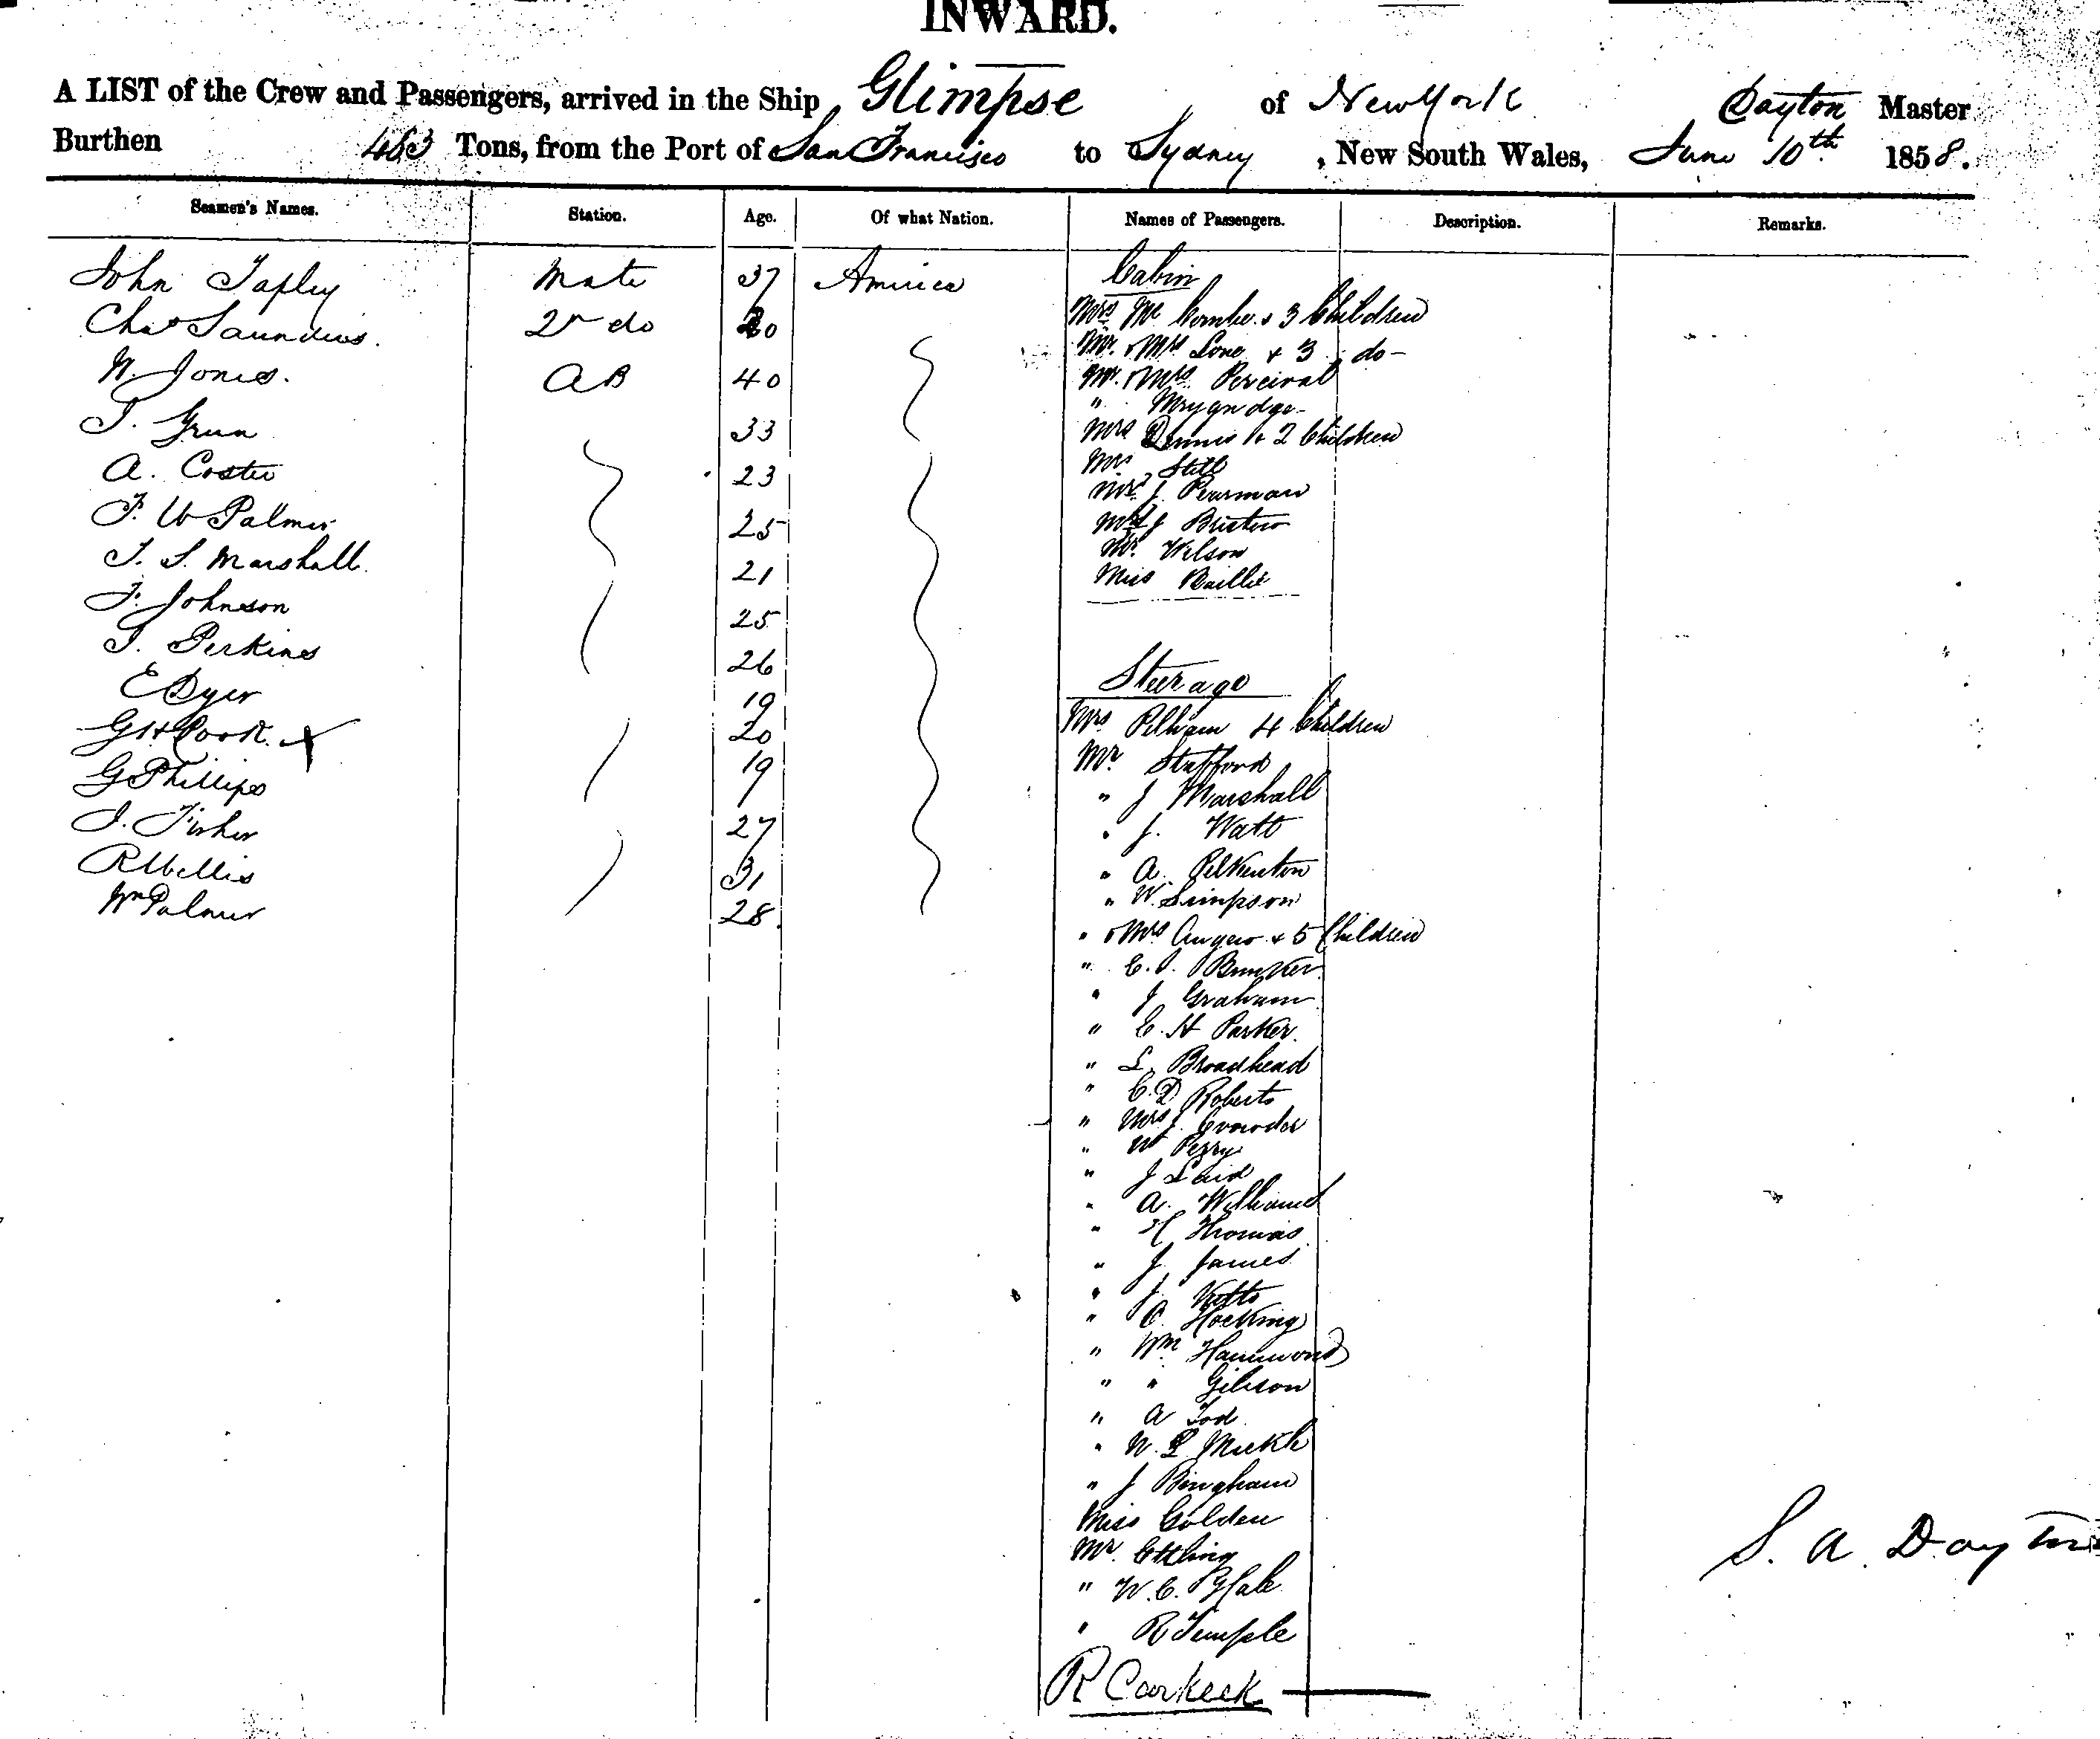 INWARD.
A LIST of the Crew and Passengers, arrived in the Ship Glimpse of New York Dayton Master
Burthen 463 Tons, from the Port of San Francisco to Sydney, New South Wales, June 10th 1858.
Seamen's Names. Station. Age. Of what Nation. Names of Passengers. Description. Remarks.
John Tapley Mate 37 America
Chas Saunders. 2nd do 20
W. Jones. AB 40
T. Green 33
A. Coster 23
F. W Palmer 25
T. S. Marshall. 21
F. Johnson 25
T. Perkins 26
E Dyer 19
G H Cook. X 20
G Phillips 19
J. Fisher 27
R Willis 31
Wm Palmer 28.
Cabin
Mrs Mc Combe & 3 Children
Mr. & Mrs Love & 3 do -
Mr. & Mrs Percival
"
Mrs Dennis & 2 Children
Mrs Still
J. Pearman
J Bristow
Mr. Wilson
Miss Baillie
Steerage
Mrs Pelham 4 Children
Mr. Stafford
" J Marshall
" J. Watt
" A. Pilkenton
" W. Simpson
" & Mrs & 5 Children
" C. J. Bunker
" J Graham
" C. H Parker.
" L. Broadhead
" C. D Roberts
" Mrs J. Crowder
" W Perry
" J Laird
" A. Williams
" H Thomas
" J. James
" J. Kitto
" C. Hocking
" Wm Hammond
" " Gibson
" A Tod
" W. L
" J Bingham
Miss Golden
Mr. Ettling
" W. C.
" R Temple
R Carkeek
S. A. Dayton